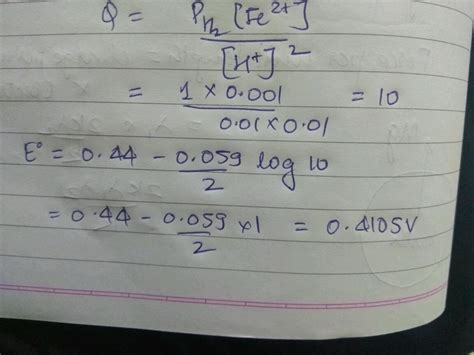 Q = P_H₂ [Fe²⁺] / [H⁺]²
= 1 × 0.001 / 0.01 × 0.01 = 10
E° = 0.44 - 0.059/2 log 10
= 0.44 - 0.059/2 × 1 = 0.4105V